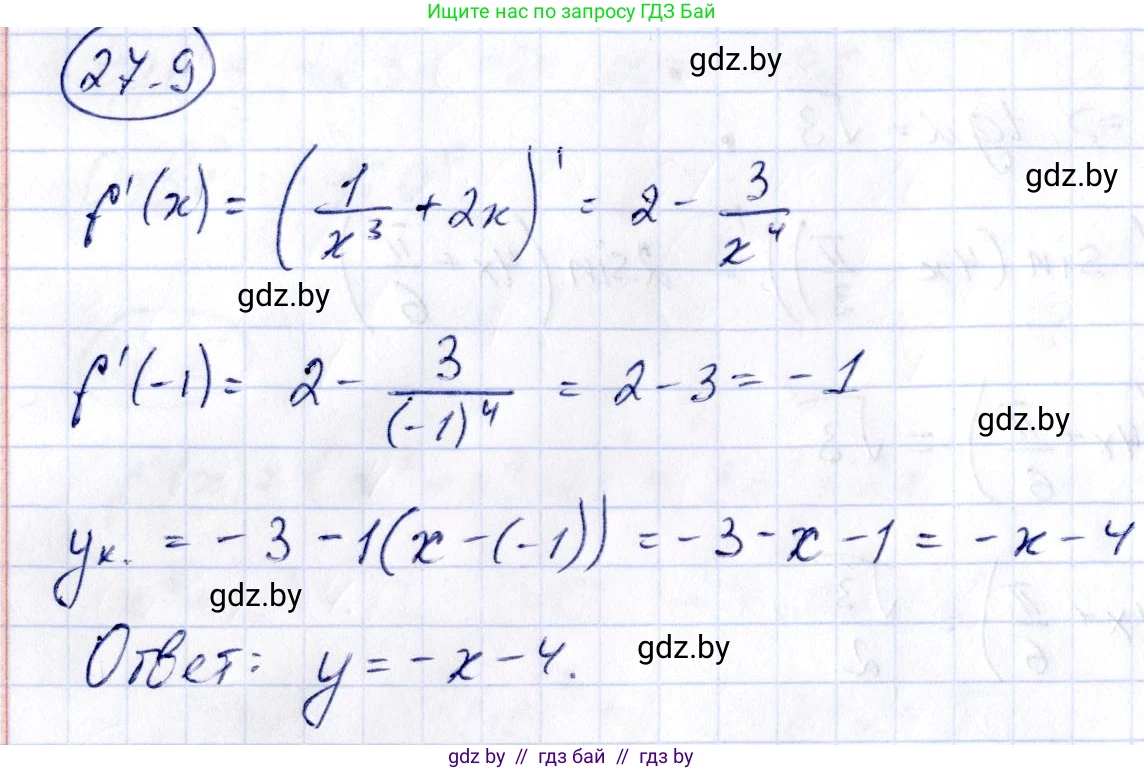 Ищите нас по запросу ГДЗ Бай
27.9
gdz.by
f'(x) = (1/x³ + 2x)' = 2 - 3/x⁴
gdz.by
gdz.by
f'(-1) = 2 - 3/(-1)⁴ = 2 - 3 = - 1
gdz.by
yк. = - 3 - 1(x - (-1)) = - 3 - x - 1 = - x - 4
gdz.by
Ответ: y = - x - 4.
gdz.by
gdz by // гдз бай // гдз by